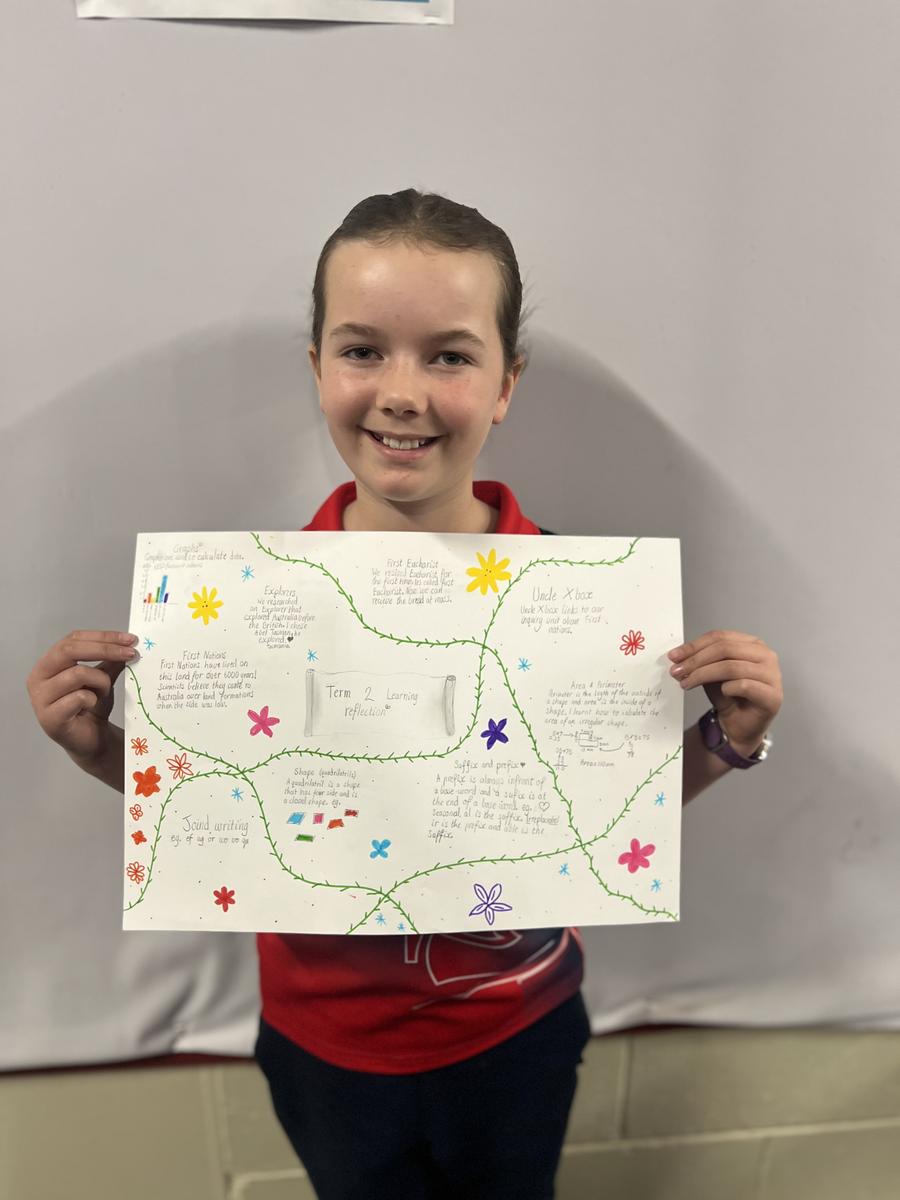 Graphs
Graphs are used to calculate data.
Explorers
We researched
an Explorer that
explored Australia before
the British. I chose
Abel Tasman, he
explored
Tasmania
First Eucharist
We recived Eucharist for
the first time, its called first
Eucharist. Now we can
receive the bread at mass.
Uncle Xbox
Uncle Xbox links to our
inquiry unit about First
nations.
First Nations
First Nations have lived on
this land for over 6000 years!
Scientists believe they came to
Australia over land formations
when the tide was low.
Term 2 Learning
reflection
Area & Perimeter
Perimeter is the legth of the outside of
a shape and area is the inside of a
shape. I learnt how to calculate the
area of an irregular shape.
Shape (quadrilatrils)
A quadrilatril is a shape
that has four side and is
a closed shape. eg.
Suffix and prefix
A prefix is always infront of
a base word and a sufix is at
the end of a base word. eg.
Seasonal, al is the suffix. Irreplaceable
ir is the prefix and able is the
suffix.
Joind writing
eg. of ag or